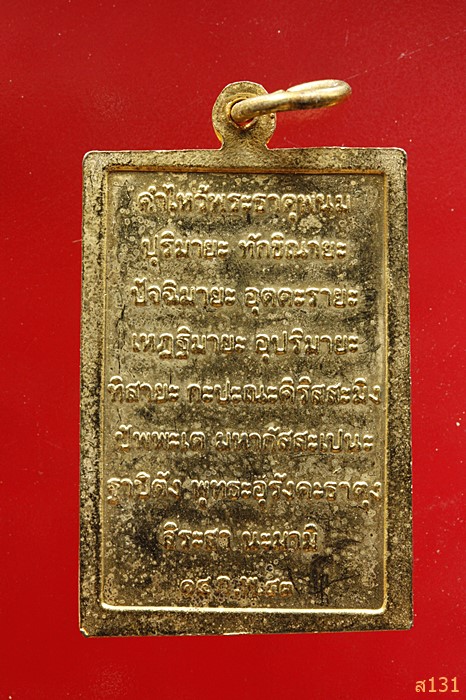 คำไหว้พระธาตุพนม
ปุริมายะ ทักขิณายะ
ปัจฉิมายะ อุตตะรายะ
เหฏฐิมายะ อุปริมายะ
ทิสายะ กะปะณะคิริสสะมิง
ปัพพะเต มหากัสสะเปนะ
ฐาปิตัง พุทธะอุรังคะธาตุง
สิระสา นะมามิ
๑๕ ก.พ. ๔๓
ส131